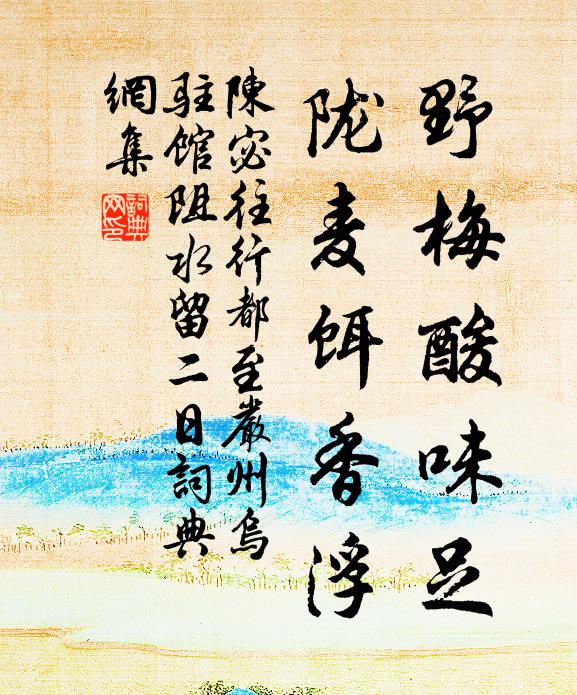 野梅酸味足
陇麦饵香浮
陳宓往行都至嚴州烏
駐馆阻水留二日詞典
網集
詞典
网印